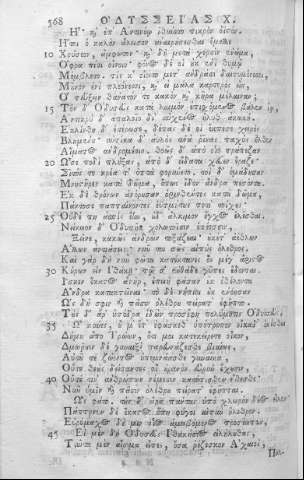 368 ΟΔΥΣΣΕΙΑΣ Χ.
Ἦ, καὶ ἐπ' Ἀντινόῳ ἰθύνετο πικρὸν ὀϊστόν.
Ἤτοι ὁ καλὸν ἄλεισον ἀναιρήσεσθαι ἔμελλε
10 Χρύσεον, ἄμφωτον· καὶ δὴ μετὰ χερσὶν ἐνώμα,
Ὄφρα πίοι οἴνοιο· φόνος δέ οἱ οὐκ ἐνὶ θυμῷ
Μέμβλετο. τίς κ' οἴοιτο μετ' ἀνδράσι δαιτυμόνεσσι,
Μοῦνον ἐνὶ πλεόνεσσι, καὶ εἰ μάλα καρτερὸς εἴη,
Οἷ τεύξειν θάνατόν τε κακὸν καὶ κῆρα μέλαιναν;
15 Τὸν δ' Ὀδυσεὺς κατὰ λαιμὸν ἐπισχόμενος βάλεν ἰῷ,
Ἀντικρὺ δ' ἁπαλοῖο δι' αὐχένος ἤλυθ' ἀκωκή.
Ἐκλίνθη δ' ἑτέρωσε, δέπας δέ οἱ ἔκπεσε χειρὸς
Βλημένου· αὐτίκα δ' αὐλὸς ἀνὰ ῥῖνας παχὺς ἦλθεν
Αἵματος ἀνδρομέοιο. θοῶς δ' ἀπὸ εἷο τράπεζαν
20 Ὦσε ποδὶ πλήξας, ἀπὸ δ' εἴδατα χεῦεν ἔραζε·
Σῖτός τε κρέα τ' ὀπτὰ φορύνετο. τοὶ δ' ὁμάδησαν
Μνηστῆρες κατὰ δώμαθ', ὅπως ἴδον ἄνδρα πεσόντα.
Ἐκ δὲ θρόνων ἀνόρουσαν ὀρινθέντες κατὰ δῶμα,
Πάντοσε παπταίνοντες ἐϋδμήτους ποτὶ τοίχους·
25 Οὐδέ πη ἀσπὶς ἔην, οὐδ' ἄλκιμον ἔγχος ἑλέσθαι.
Νείκειον δ' Ὀδυσῆα χολωτοῖσιν ἐπέεσσι,
Ξεῖνε, κακῶς ἀνδρῶν τοξάζεαι· οὐκέτ' ἀέθλων
Ἄλλων ἀντιάσεις· νῦν τοι σῶς αἰπὺς ὄλεθρος.
Καὶ γὰρ δὴ νῦν φῶτα κατέκτανες ὃς μέγ' ἄριστος
30 Κούρων εἰν Ἰθάκῃ· τῷ σ' ἐνθάδε γῦπες ἔδονται.
Ἴσκεν ἕκαστος ἀνήρ, ἐπειὴ φάσαν οὐκ ἐθέλοντα
Ἄνδρα κατακτεῖναι. τὸ δὲ νήπιοι οὐκ ἐνόησαν
Ὡς δή σφιν καὶ πᾶσιν ὀλέθρου πείρατ' ἐφῆπτο.
Τοὺς δ' ἄρ' ὑπόδρα ἰδὼν προσέφη πολύμητις Ὀδυσσεύς,
35 Ὦ κύνες, οὔ μ' ἔτ' ἐφάσκεθ' ὑπότροπον οἴκαδ' ἱκέσθαι
Δήμου ἄπο Τρώων, ὅτι μοι κατεκείρετε οἶκον,
Δμωῇσιν δὲ γυναιξὶ παρευνάζεσθε βιαίως,
Αὐτοῦ τε ζώοντος ὑπεμνάασθε γυναῖκα,
Οὔτε θεοὺς δείσαντες οἳ οὐρανὸν εὐρὺν ἔχουσιν
40 Οὔτε τιν' ἀνθρώπων νέμεσιν κατόπισθεν ἔσεσθαι·
Νῦν ὑμῖν καὶ πᾶσιν ὀλέθρου πείρατ' ἐφῆπται.
Ὣς φάτο, τοὺς δ' ἄρα πάντας ὑπὸ χλωρὸν δέος εἷλεν·
Πάπτηνεν δὲ ἕκαστος ὅπη φύγοι αἰπὺν ὄλεθρον.
Εὐρύμαχος δέ μιν οἶος ἀμειβόμενος προσέειπεν,
45 Εἰ μὲν δὴ Ὀδυσεὺς Ἰθακήσιος εἰλήλουθας,
Ταῦτα μὲν αἴσιμα εἶπες, ὅσα ῥέζεσκον Ἀχαιοί,
Πολ-